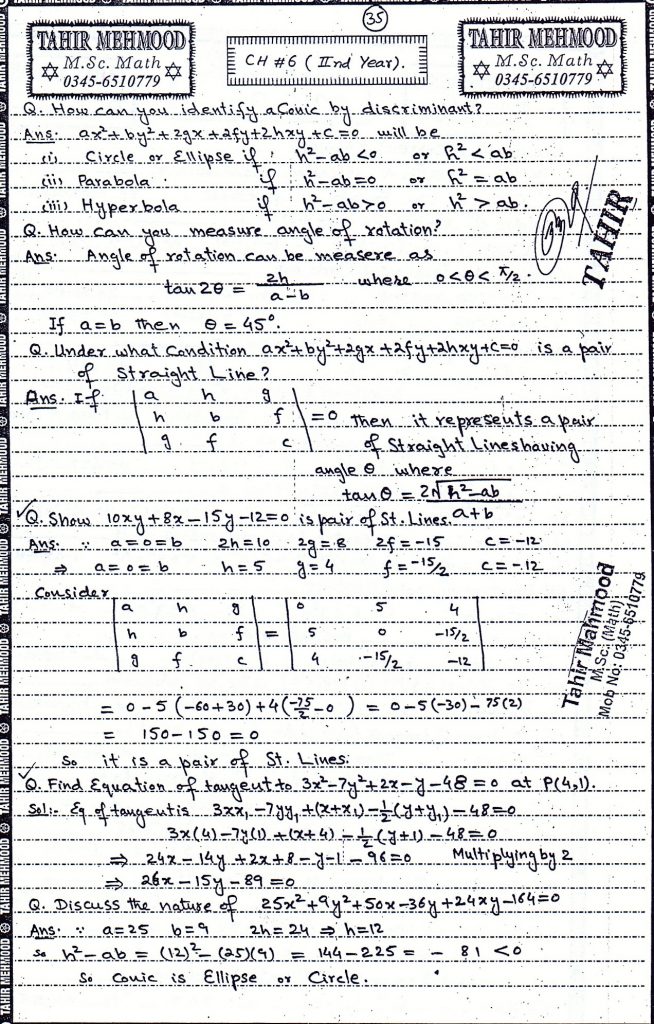 35
TAHIR MEHMOOD
M.Sc. Math
0345-6510779
CH #6 ( IInd Year).
TAHIR MEHMOOD
M.Sc. Math
0345-6510779
Q. How can you identify a Conic by discriminant?
Ans:- ax²+by²+2gx+2fy+2hxy+c=0 will be
(i) Circle or Ellipse if h²-ab<0 or h²<ab
(ii) Parabola if h²-ab=0 or h²=ab
(iii) Hyperbola if h²-ab>0 or h²>ab.
Q. How can you measure angle of rotation?
Ans:- Angle of rotation can be measere as
tan2θ = 2h/(a-b) where 0<θ<π/2.
If a=b then θ=45°.
Q. Under what Condition ax²+by²+2gx+2fy+2hxy+c=0 is a pair
of Straight Line?
Ans. If | a h g |
| h b f | =0 Then it represents a pair
| g f c | of Straight Lines having
angle θ where
tanθ = 2√(h²-ab)/(a+b)
Q. Show 10xy+8x-15y-12=0 is pair of St. Lines.
Ans. ∵ a=0=b 2h=10 2g=8 2f=-15 c=-12
⇒ a=0=b h=5 g=4 f=-15/2 c=-12
Consider
| a h g | | 0 5 4 |
| h b f | = | 5 0 -15/2 |
| g f c | | 4 -15/2 -12 |
= 0-5(-60+30)+4(-75/2-0) = 0-5(-30)-75(2)
= 150-150=0
So it is a pair of St. Lines.
Q. Find Equation of tangent to 3x²-7y²+2x-y-48=0 at P(4,1).
Sol:- Eq of tangent is 3xx₁-7yy₁+(x+x₁)-1/2(y+y₁)-48=0
3x(4)-7y(1)+(x+4)-1/2(y+1)-48=0
⇒ 24x-14y+2x+8-y-1-96=0 Multiplying by 2
⇒ 26x-15y-89=0
Q. Discuss the nature of 25x²+9y²+50x-36y+24xy-164=0
Ans. ∵ a=25 b=9 2h=24 ⇒ h=12
so h²-ab = (12)²-(25)(9) = 144-225 = -81<0
So Conic is Ellipse or Circle.
TAHIR
Tahir Mahmood
M.Sc. (Math)
Mob No: 0345-6510779
TAHIR MEHMOOD